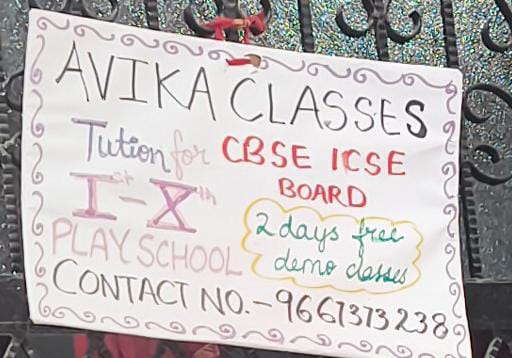 AVIKA CLASSES
Tution for CBSE ICSE
BOARD
Ist - Xth
2 days free
demo classes
PLAY SCHOOL
CONTACT NO. - 9667373238